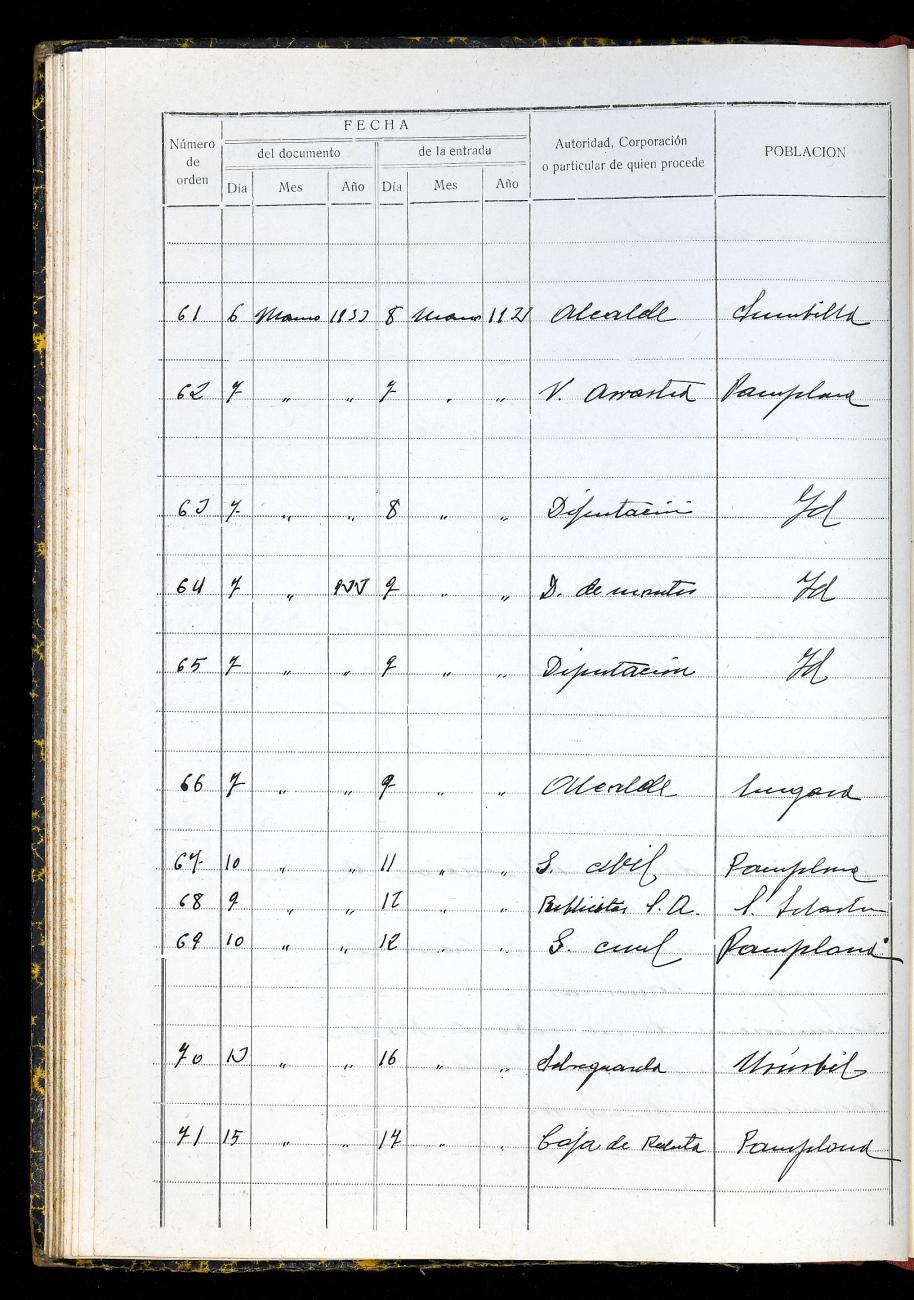 FECHA
Número de orden
del documento
de la entrada
Autoridad, Corporación o particular de quien procede
POBLACION
Día Mes Año Día Mes Año
61 6 Marzo 1933 8 Marzo Alcalde Sumbilla
62 7 „ „ 7 „ „ V. Arrastia Pamplona
63 7 „ „ 8 „ „ Diputación Id
64 7 „ 9 „ „ D. de montes Id
65 7 „ „ 9 „ „ Diputación Id
66 7 „ „ 9 „ „ Alcalde
67 10 „ „ 11 „ „ G. civil Pamplona
68 9 „ „ 12 „ „ S. A. S. Sebastian
69 10 „ „ 12 „ „ G. civil Pamplona
70 13 „ „ 16 „ „
71 15 „ „ 17 „ „ Caja de Recluta Pamplona